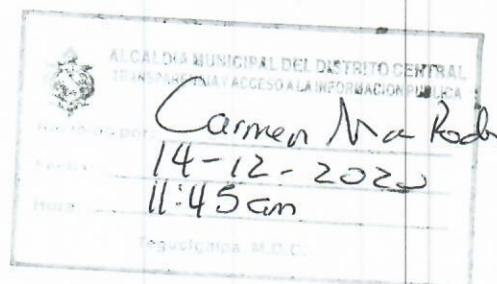 ALCALDIA MUNICIPAL DEL DISTRITO CENTRAL
TRANSPARENCIA Y ACCESO A LA INFORMACION PUBLICA
Recibido por: Carmen Ma Rodr
Fecha: 14-12-2020
Hora: 11:45 am
Tegucigalpa, M.D.C.